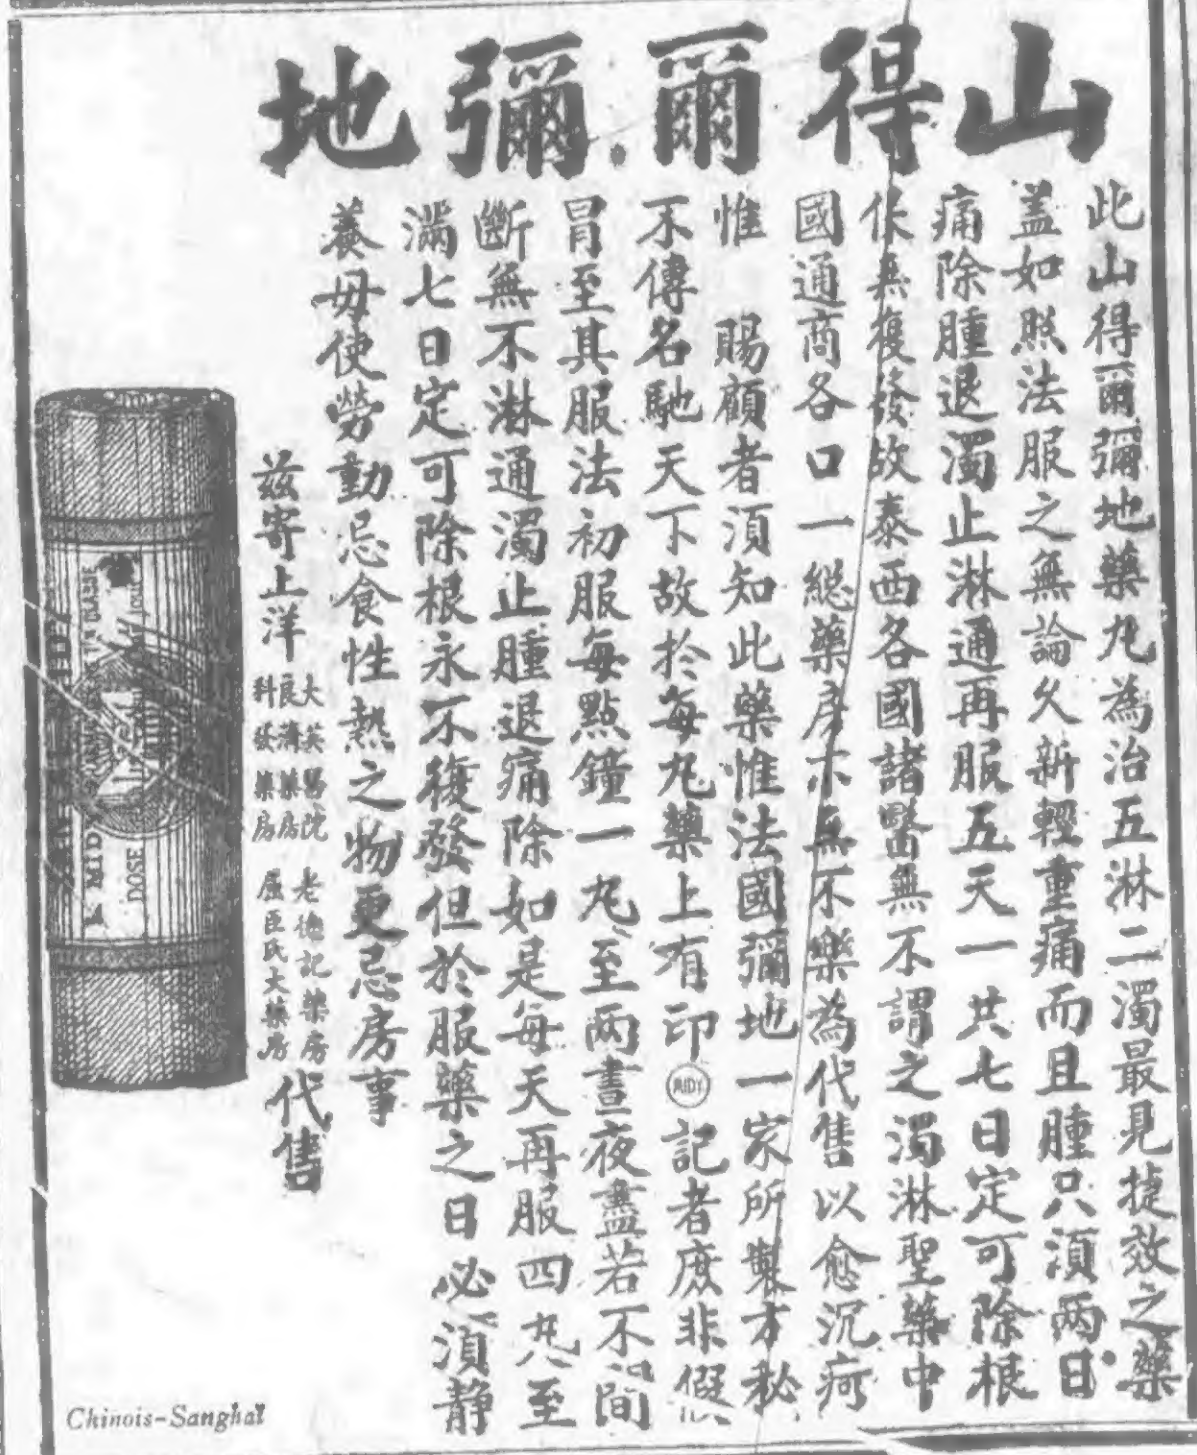 山得爾彌地
此山得爾彌地藥丸為治五淋二濁最見捷效之藥
蓋如照法服之無論久新輕重痛而且腫只須两日
痛除腫退濁止淋通再服五天一共七日定可除根
保無復發故泰西各國諸醫無不謂之濁淋聖藥中
國通商各口一総藥房亦無不樂為代售以愈沉疴
惟 賜顧者須知此藥惟法國彌地一家所製方秘
不傳名馳天下故於每丸藥上有印MIDY記者庶非假
冒至其服法初服每點鐘一丸至两晝夜盡若不間
斷無不淋通濁止腫退痛除如是每天再服四丸至
滿七日定可除根永不復發但於服藥之日必須静
養毋使勞動忌食性熱之物更忌房事
茲寄上洋
大英醫院 老德記藥房
良濟藥房 屈臣氏大藥房
科發藥房
代售
MIDY
DOSE
Chinois-Sanghaï